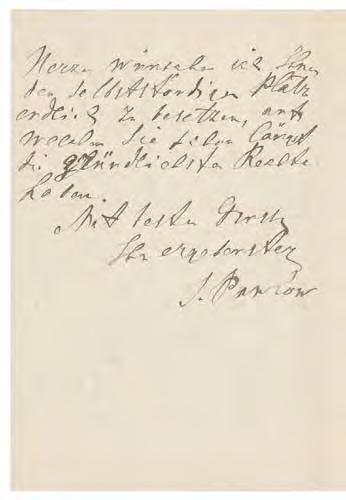 Herzen wünschen ich Ihnen
den selbstständigen Platz
endlich zu besetzen, auf
welchen Sie schon längst
die gründlichsten Rechte
haben.
Mit besten Gruss
Ihr ergebenster
J. Pawlow